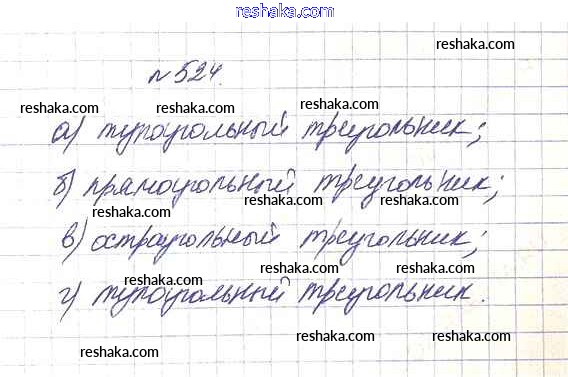 reshaka.com
reshaka.com
№ 524.
reshaka.com
reshaka.com reshaka.com
а) тупоугольный треугольник;
reshaka.com
б) прямоугольный треугольник;
reshaka.com reshaka.com
в) остроугольный треугольник;
reshaka.com
reshaka.com
г) тупоугольный треугольник.
reshaka.com
reshaka.com